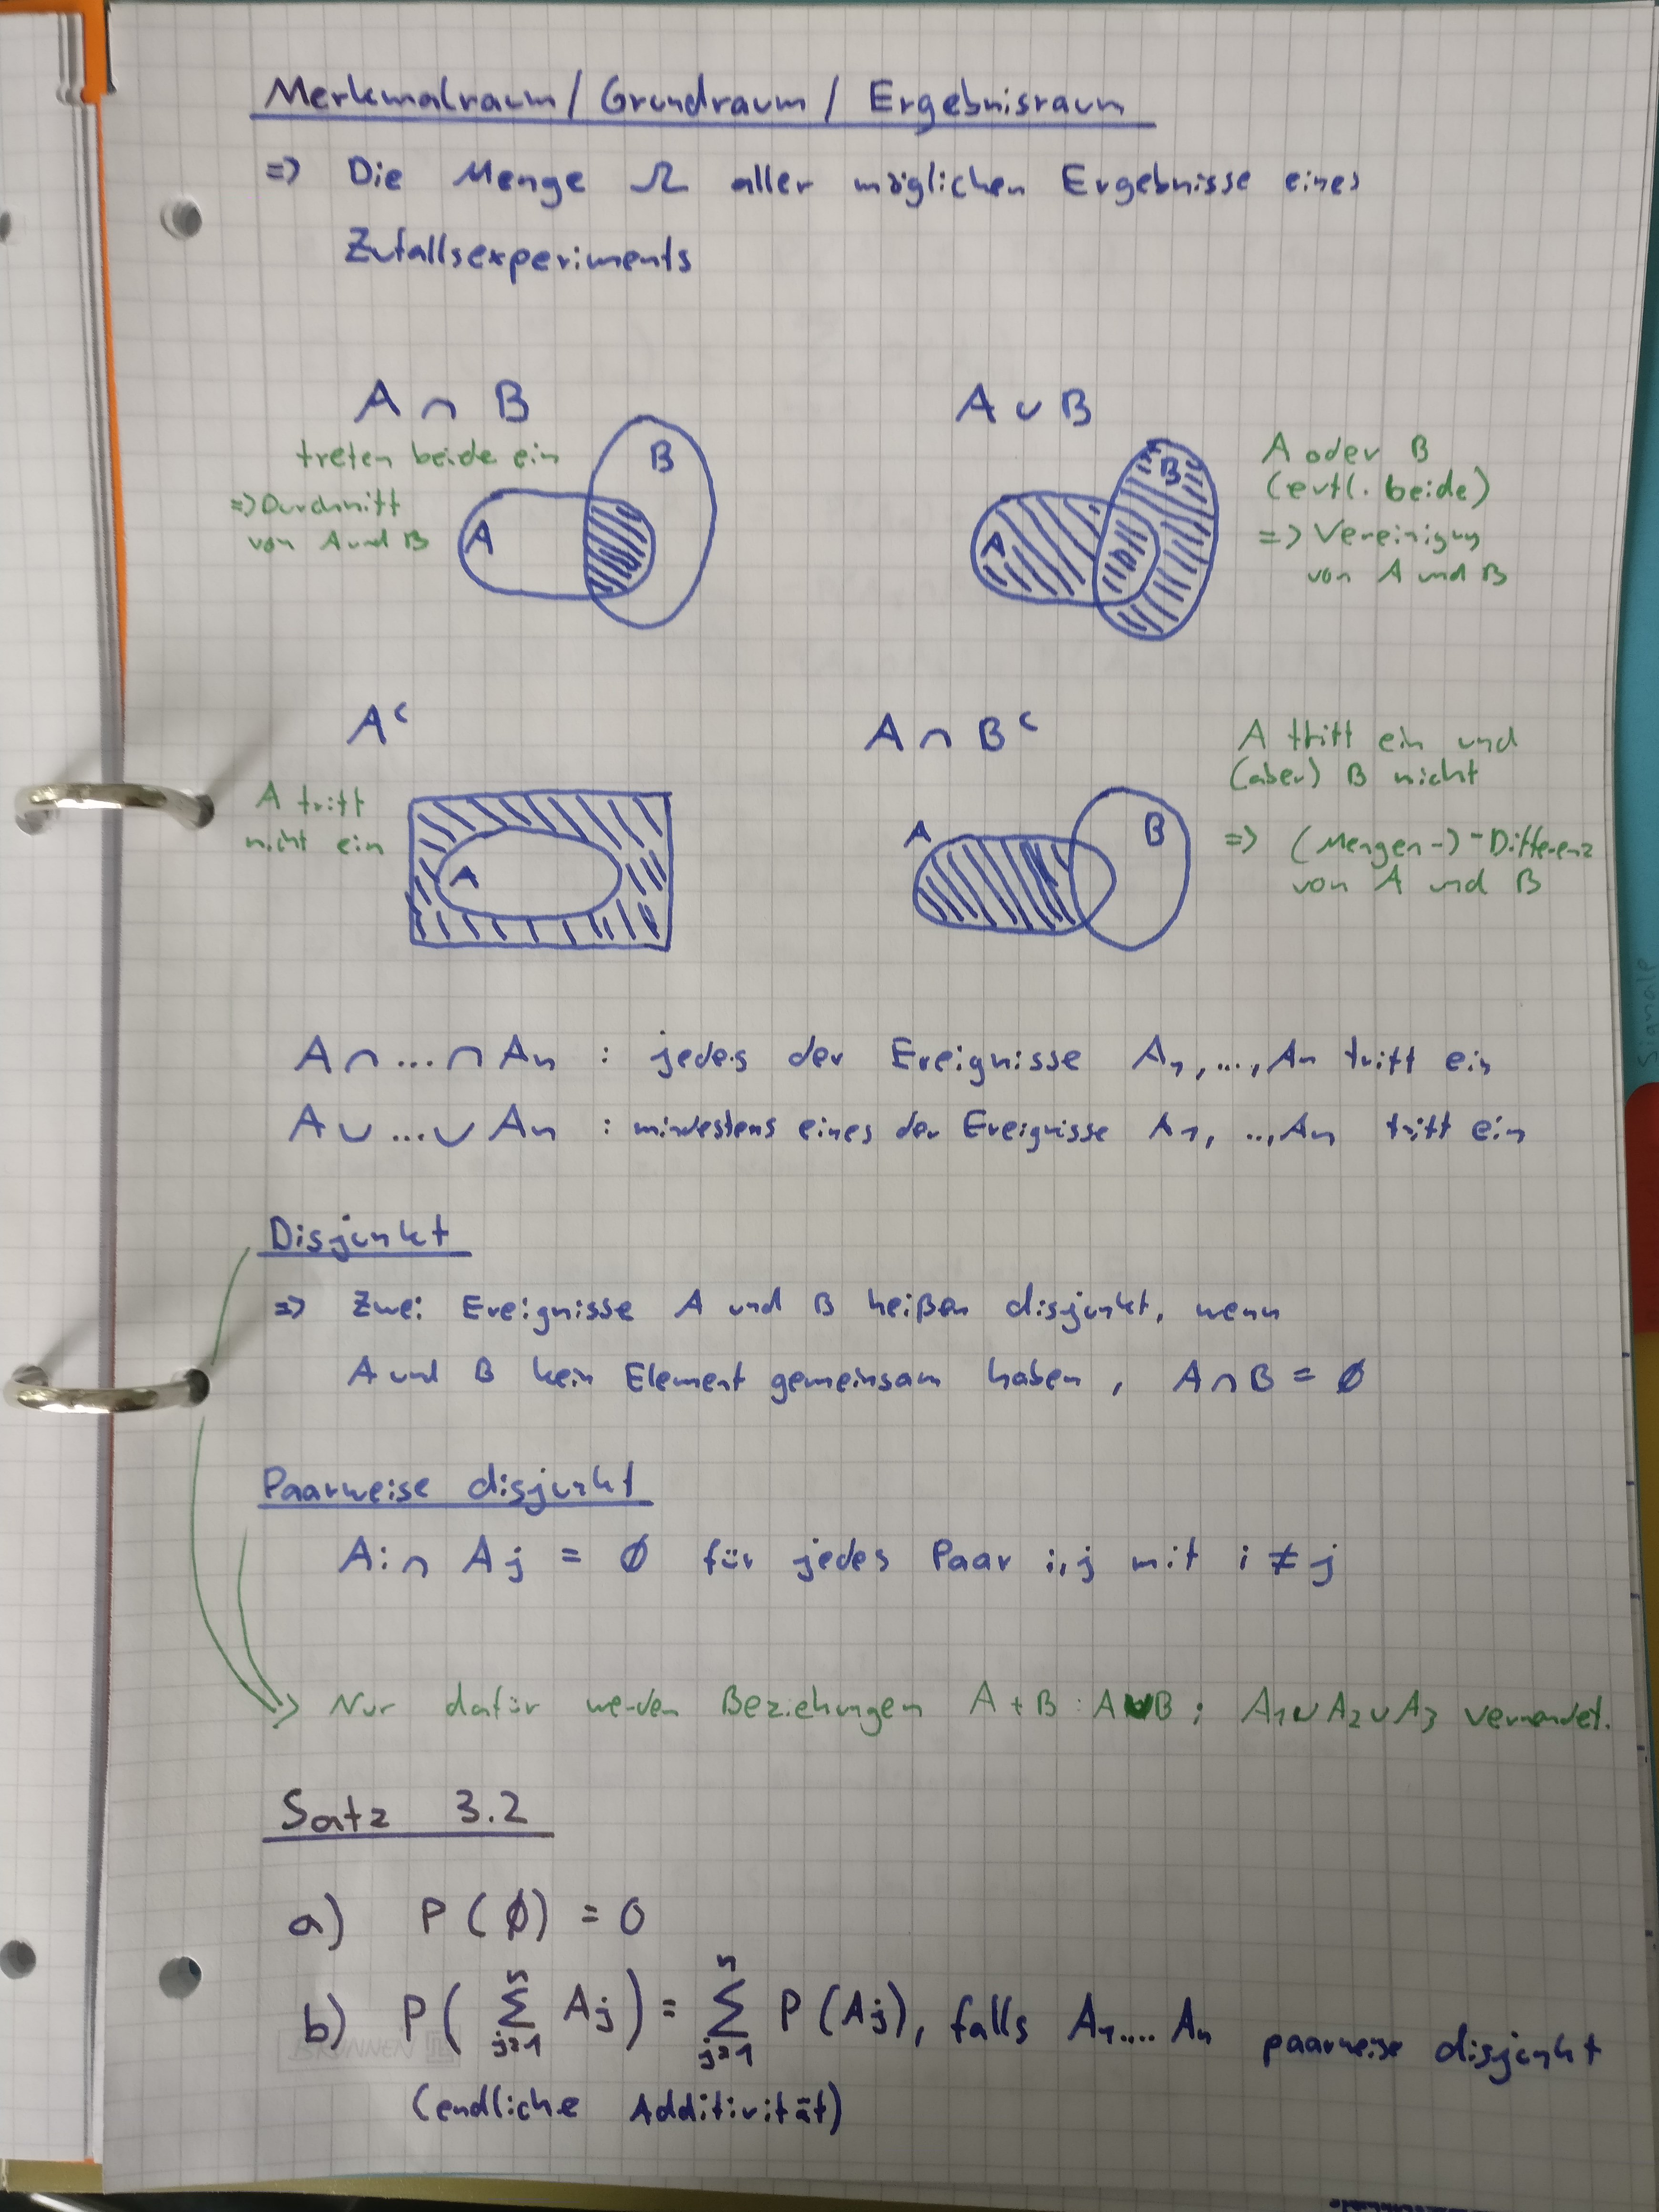 Merkmalraum / Grundraum / Ergebnisraum
=> Die Menge Ω aller möglichen Ergebnisse eines
Zufallsexperiments
A ∩ B
treten beide ein
=> Durchnitt
von A und B
A
B
A ∪ B
A
B
A oder B
(evtl. beide)
=> Vereinigung
von A und B
Aᶜ
A tritt
nicht ein
A
A ∩ Bᶜ
A
B
A tritt ein und
(aber) B nicht
=> (Mengen-)-Differenz
von A und B
A ∩ ... ∩ An : jedes der Ereignisse A1, ..., An tritt ein
A ∪ ... ∪ An : mindestens eines der Ereignisse A1, ..., An tritt ein
Disjunkt
=> Zwei Ereignisse A und B heißen disjunkt, wenn
A und B kein Element gemeinsam haben, A ∩ B = ∅
Paarweise disjunkt
Ai ∩ Aj = ∅ für jedes Paar i,j mit i ≠ j
Nur dafür werden Beziehungen A + B : A ∪ B ; A1 ∪ A2 ∪ A3 verwendet.
Satz 3.2
a) P(∅) = 0
b) P( n Σ j=1 Aj ) = n Σ j=1 P(Aj), falls A1.... An paarweise disjunkt
(endliche Additivität)
BRUNNEN
Signale